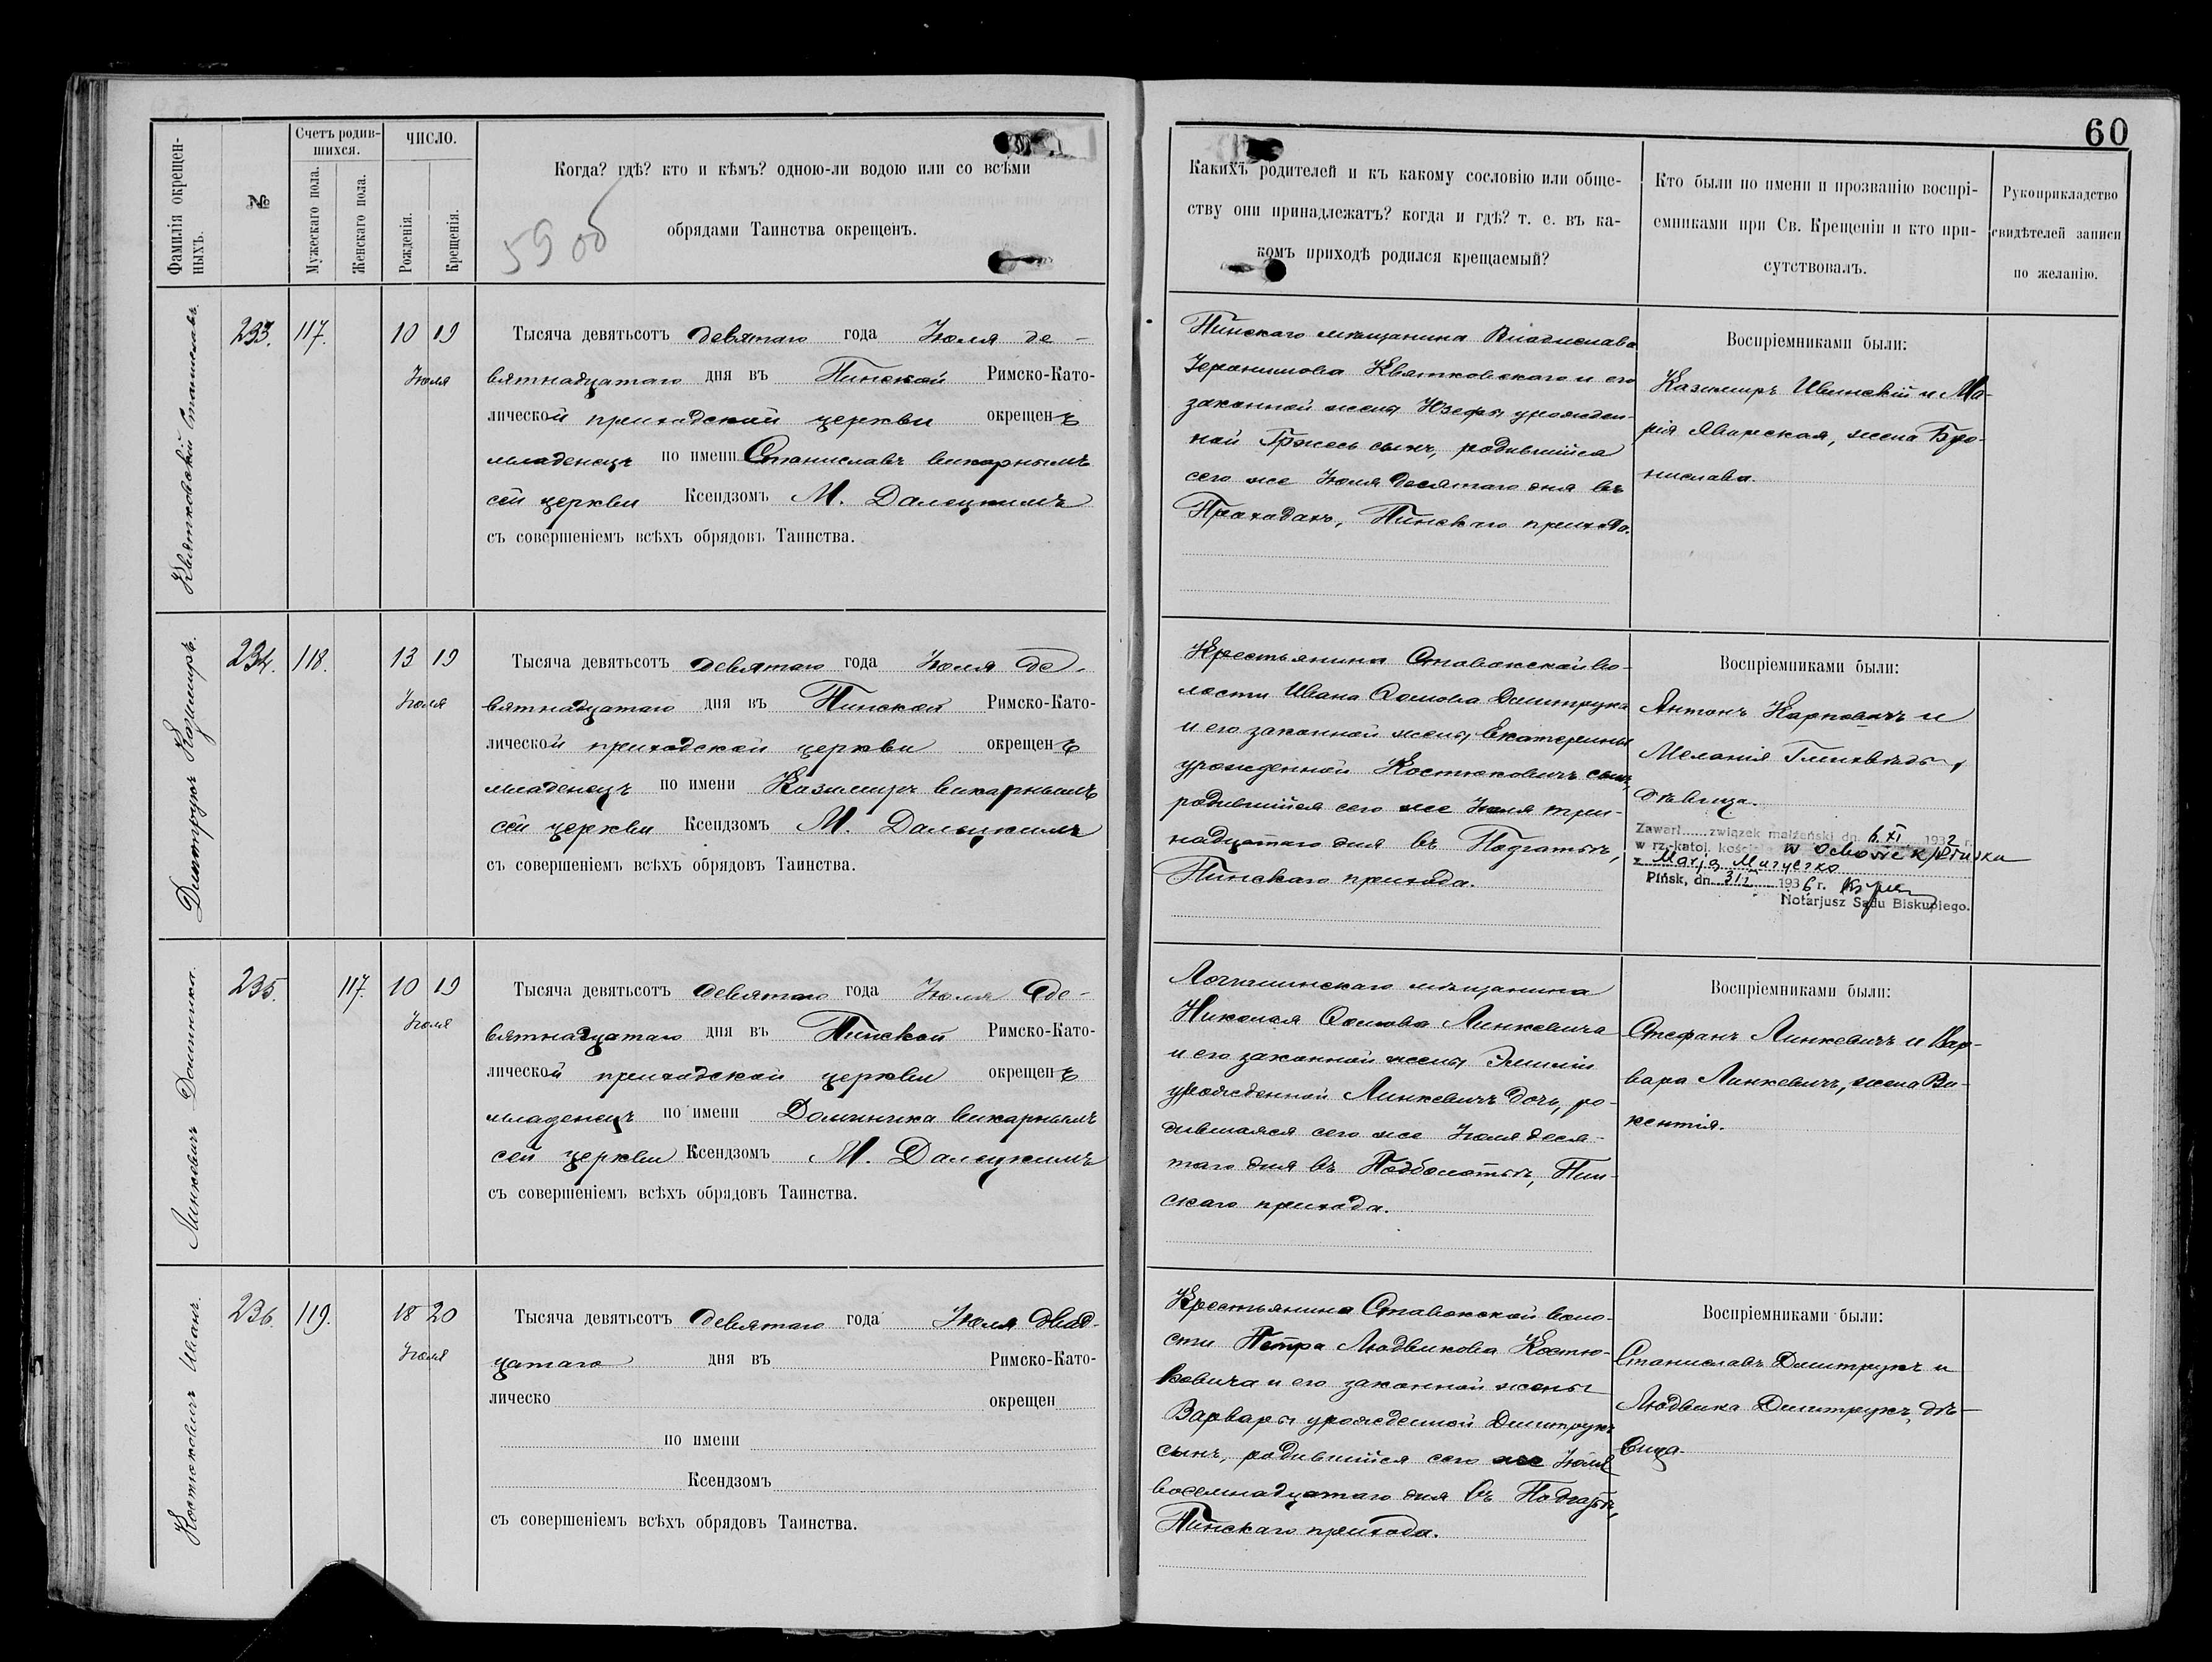 60
Фамилія окрещен-
ныхъ.
№
Счетъ родив-
шихся.
Мужескаго пола.
Женскаго пола.
ЧИСЛО.
Рожденія.
Крещенія.
Когда? гдѣ? кто и кѣмъ? одною-ли водою или со всѣми
обрядами Таинства окрещенъ.
59 об
Какихъ родителей и къ какому сословію или обще-
ству они принадлежатъ? когда и гдѣ? т. е. въ ка-
комъ приходѣ родился крещаемый?
Кто были по имени и прозванію воспрі-
емниками при Св. Крещеніи и кто при-
сутствовалъ.
Рукоприкладство
свидѣтелей записи
по желанію.
Квятковскій Станиславъ.
233.
117.
10 19
Іюля
Тысяча девятьсотъ девятаго года Іюля де-
вятнадцатаго дня въ Пинской Римско-Като-
лической приходской церкви окрещенъ
младенецъ по имени Станиславъ викарнымъ
сей церкви Ксендзомъ М. Далецкимъ
съ совершеніемъ всѣхъ обрядовъ Таинства.
Пинскаго мѣщанина Владислава
Іеронимова Квятковскаго и его
законной жены Юзефы урожден-
ной Гржесь сынъ, родившійся
сего же Іюля десятаго дня въ
Проходахъ, Пинскаго прихода.
Воспріемниками были:
Казимиръ Ивинскій и Ма-
рія Яварская, жена Бро-
нислава.
Дмитрукъ Казимиръ.
234.
118.
13 19
Іюля
Тысяча девятьсотъ девятаго года Іюля де-
вятнадцатаго дня въ Пинской Римско-Като-
лической приходской церкви окрещенъ
младенецъ по имени Казимиръ викарнымъ
сей церкви Ксендзомъ М. Далецкимъ
съ совершеніемъ всѣхъ обрядовъ Таинства.
Крестьянина Ставокской во-
лости Ивана Осипова Дмитрука
и его законной жены Екатерины
урожденной Костюковичъ сынъ,
родившійся сего же Іюля три-
надцатаго дня въ
Пинскаго прихода.
Воспріемниками были:
Антонъ Карповичъ и
Меланія
дѣвица.
Zawarł związek małżeński dn. 6.XI 1932 r.
w rz.-katol. kościele w Ochowie k/Pińska
z Marją Muryczko
Pińsk, dn. 31 I 1936 r.
Notarjusz Sądu Biskupiego.
Линкевичъ Доминика.
235.
117.
10 19
Іюля
Тысяча девятьсотъ девятаго года Іюля де-
вятнадцатаго дня въ Пинской Римско-Като-
лической приходской церкви окрещенъ
младенецъ по имени Доминика викарнымъ
сей церкви Ксендзомъ М. Далецкимъ
съ совершеніемъ всѣхъ обрядовъ Таинства.
Логишинскаго мѣщанина
Николая Осипова Линкевича
и его законной жены Эмиліи
урожденной Линкевичъ дочь, ро-
дившаяся сего же Іюля деся-
таго дня въ Подболотьѣ, Пин-
скаго прихода.
Воспріемниками были:
Стефанъ Линкевичъ и Вар-
вара Линкевичъ, жена Ви-
кентія.
Костюковичъ Иванъ.
236.
119.
18 20
Іюля
Тысяча девятьсотъ девятаго года Іюля двад-
цатаго дня въ Римско-Като-
лическо окрещен
по имени
Ксендзомъ
съ совершеніемъ всѣхъ обрядовъ Таинства.
Крестьянина Ставокской воло-
сти Петра Людвикова Костю-
ковича и его законной жены
Варвары урожденной Дмитрукъ
сынъ, родившійся сего же Іюля
восемнадцатаго дня въ
Пинскаго прихода.
Воспріемниками были:
Станиславъ Дмитрукъ и
Людвика Дмитрукъ, дѣ-
вица.